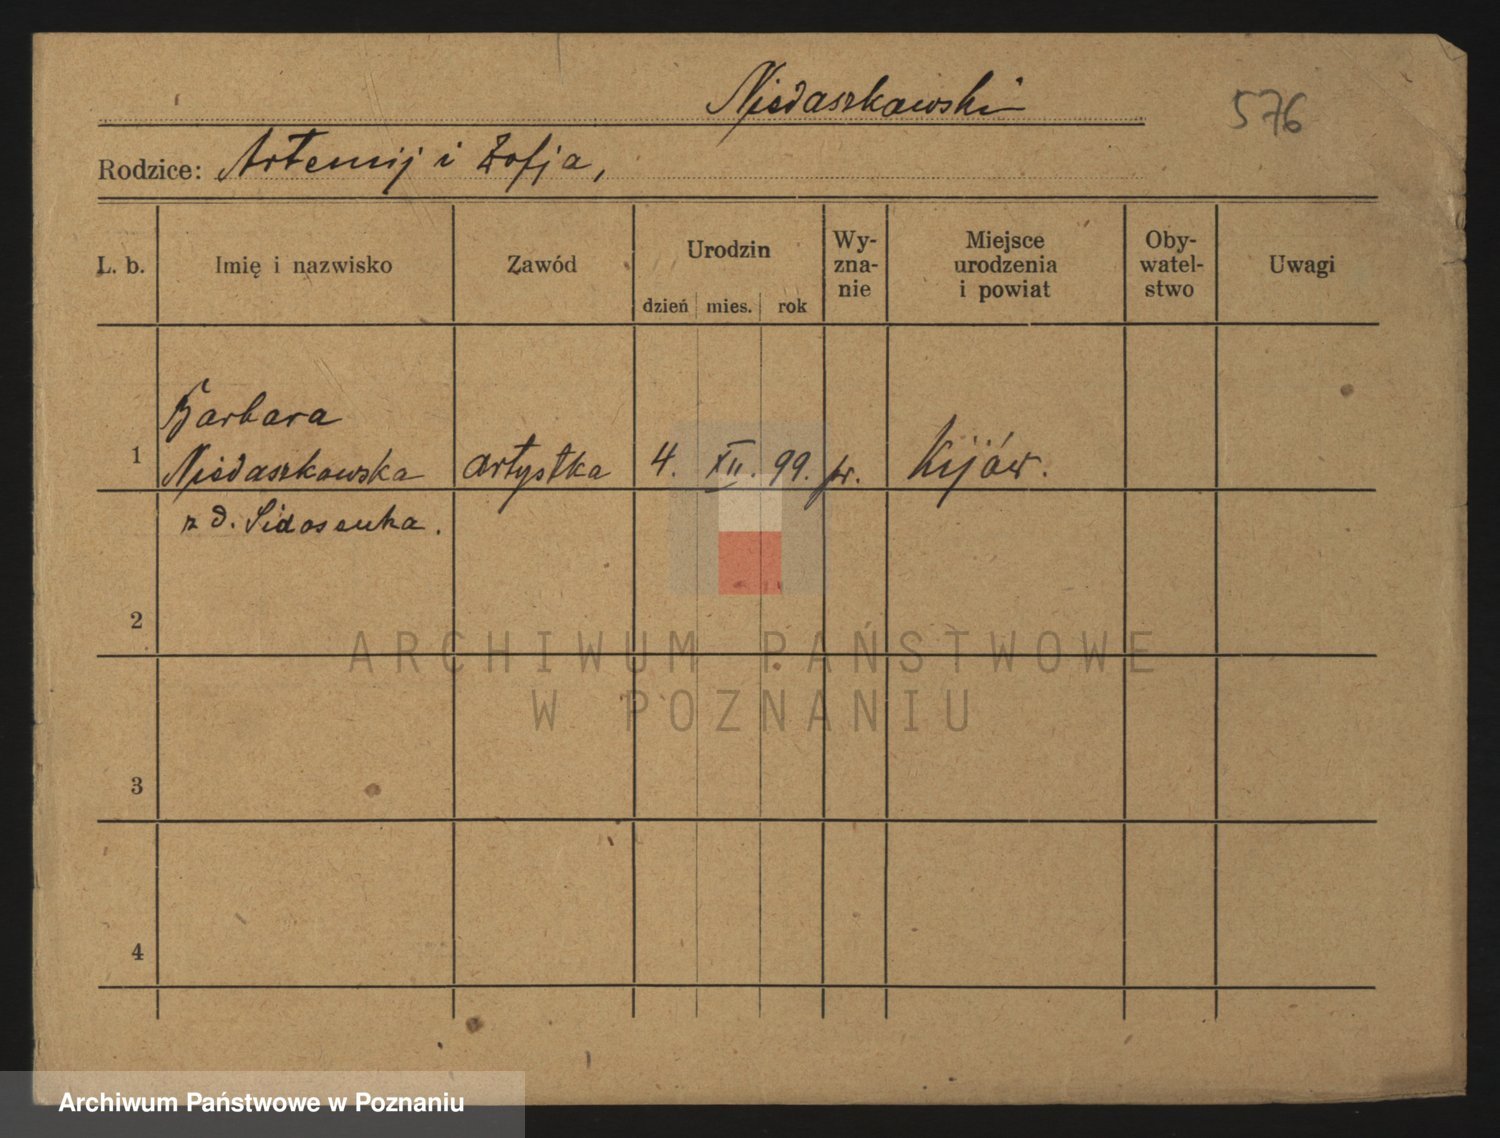 Niedaszkowski
576
Rodzice: Artemij i Zofja,
L. b.
Imię i nazwisko
Zawód
Urodzin
dzień mies. rok
Wy-
zna-
nie
Miejsce
urodzenia
i powiat
Oby-
watel-
stwo
Uwagi
Barbara
1 Niedaszkowska artystka 4. XII. 99. pr. Kijów.
z d. Sidosenka.
2
ARCHIWUM PAŃSTWOWE
W POZNANIU
3
4
Archiwum Państwowe w Poznaniu